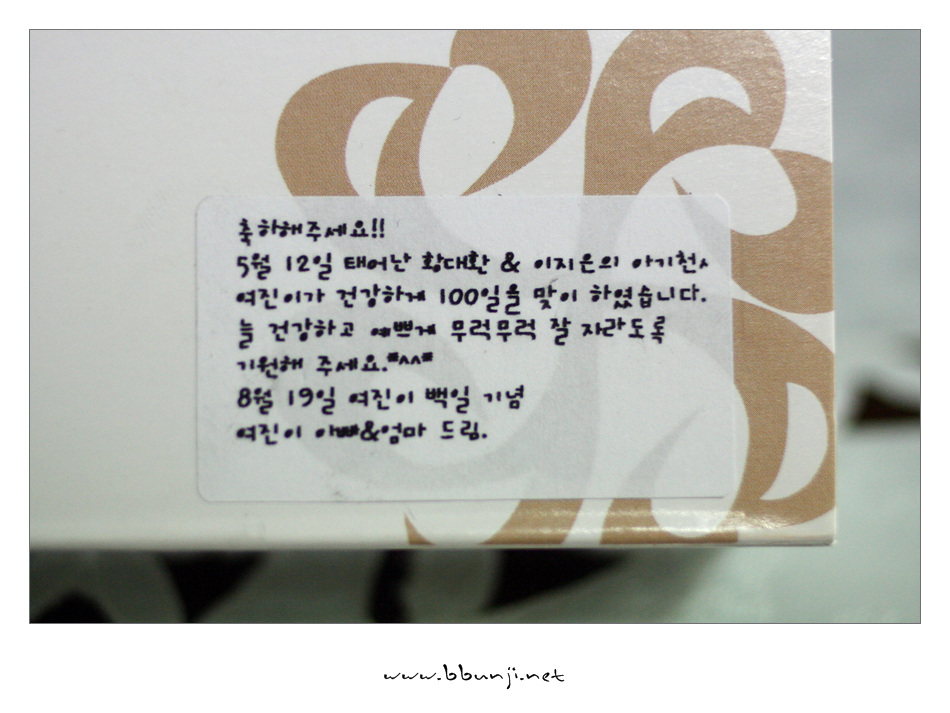 축하해주세요!!
5월 12일 태어난 황대환 & 이지은의 아기천사
여진이가 건강하게 100일을 맞이 하였습니다.
늘 건강하고 예쁘게 무럭무럭 잘 자라도록
기원해 주세요.*^^*
8월 19일 여진이 백일 기념
여진이 아빠&엄마 드림.
www.bbunji.net